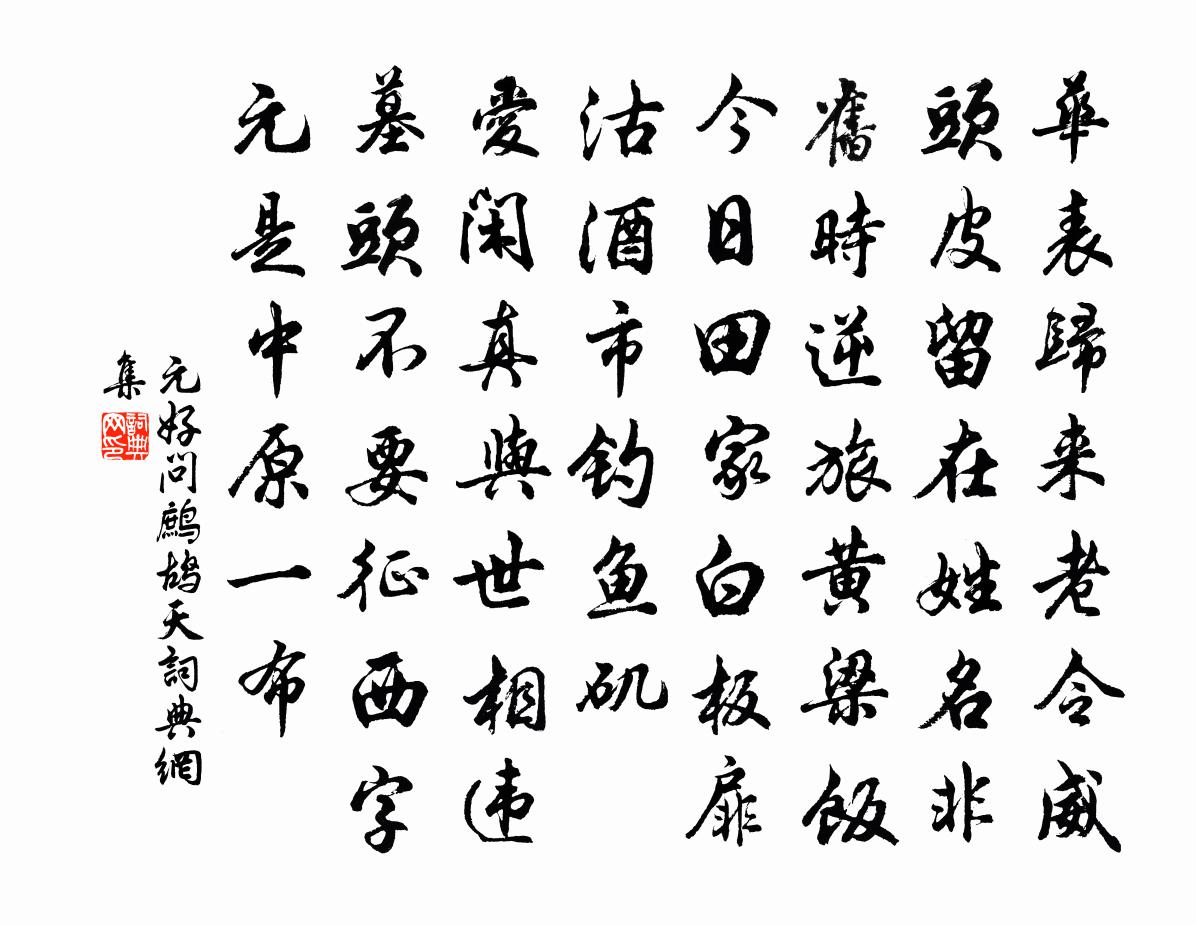 華表歸来老令威
頭皮留在姓名非
舊時逆旅黄粱飯
今日田家白板扉
沽酒市釣魚矶
愛閑真與世相违
墓頭不要征西字
元是中原一布
元好问鷓鴣天詞典網
集
詞典网印